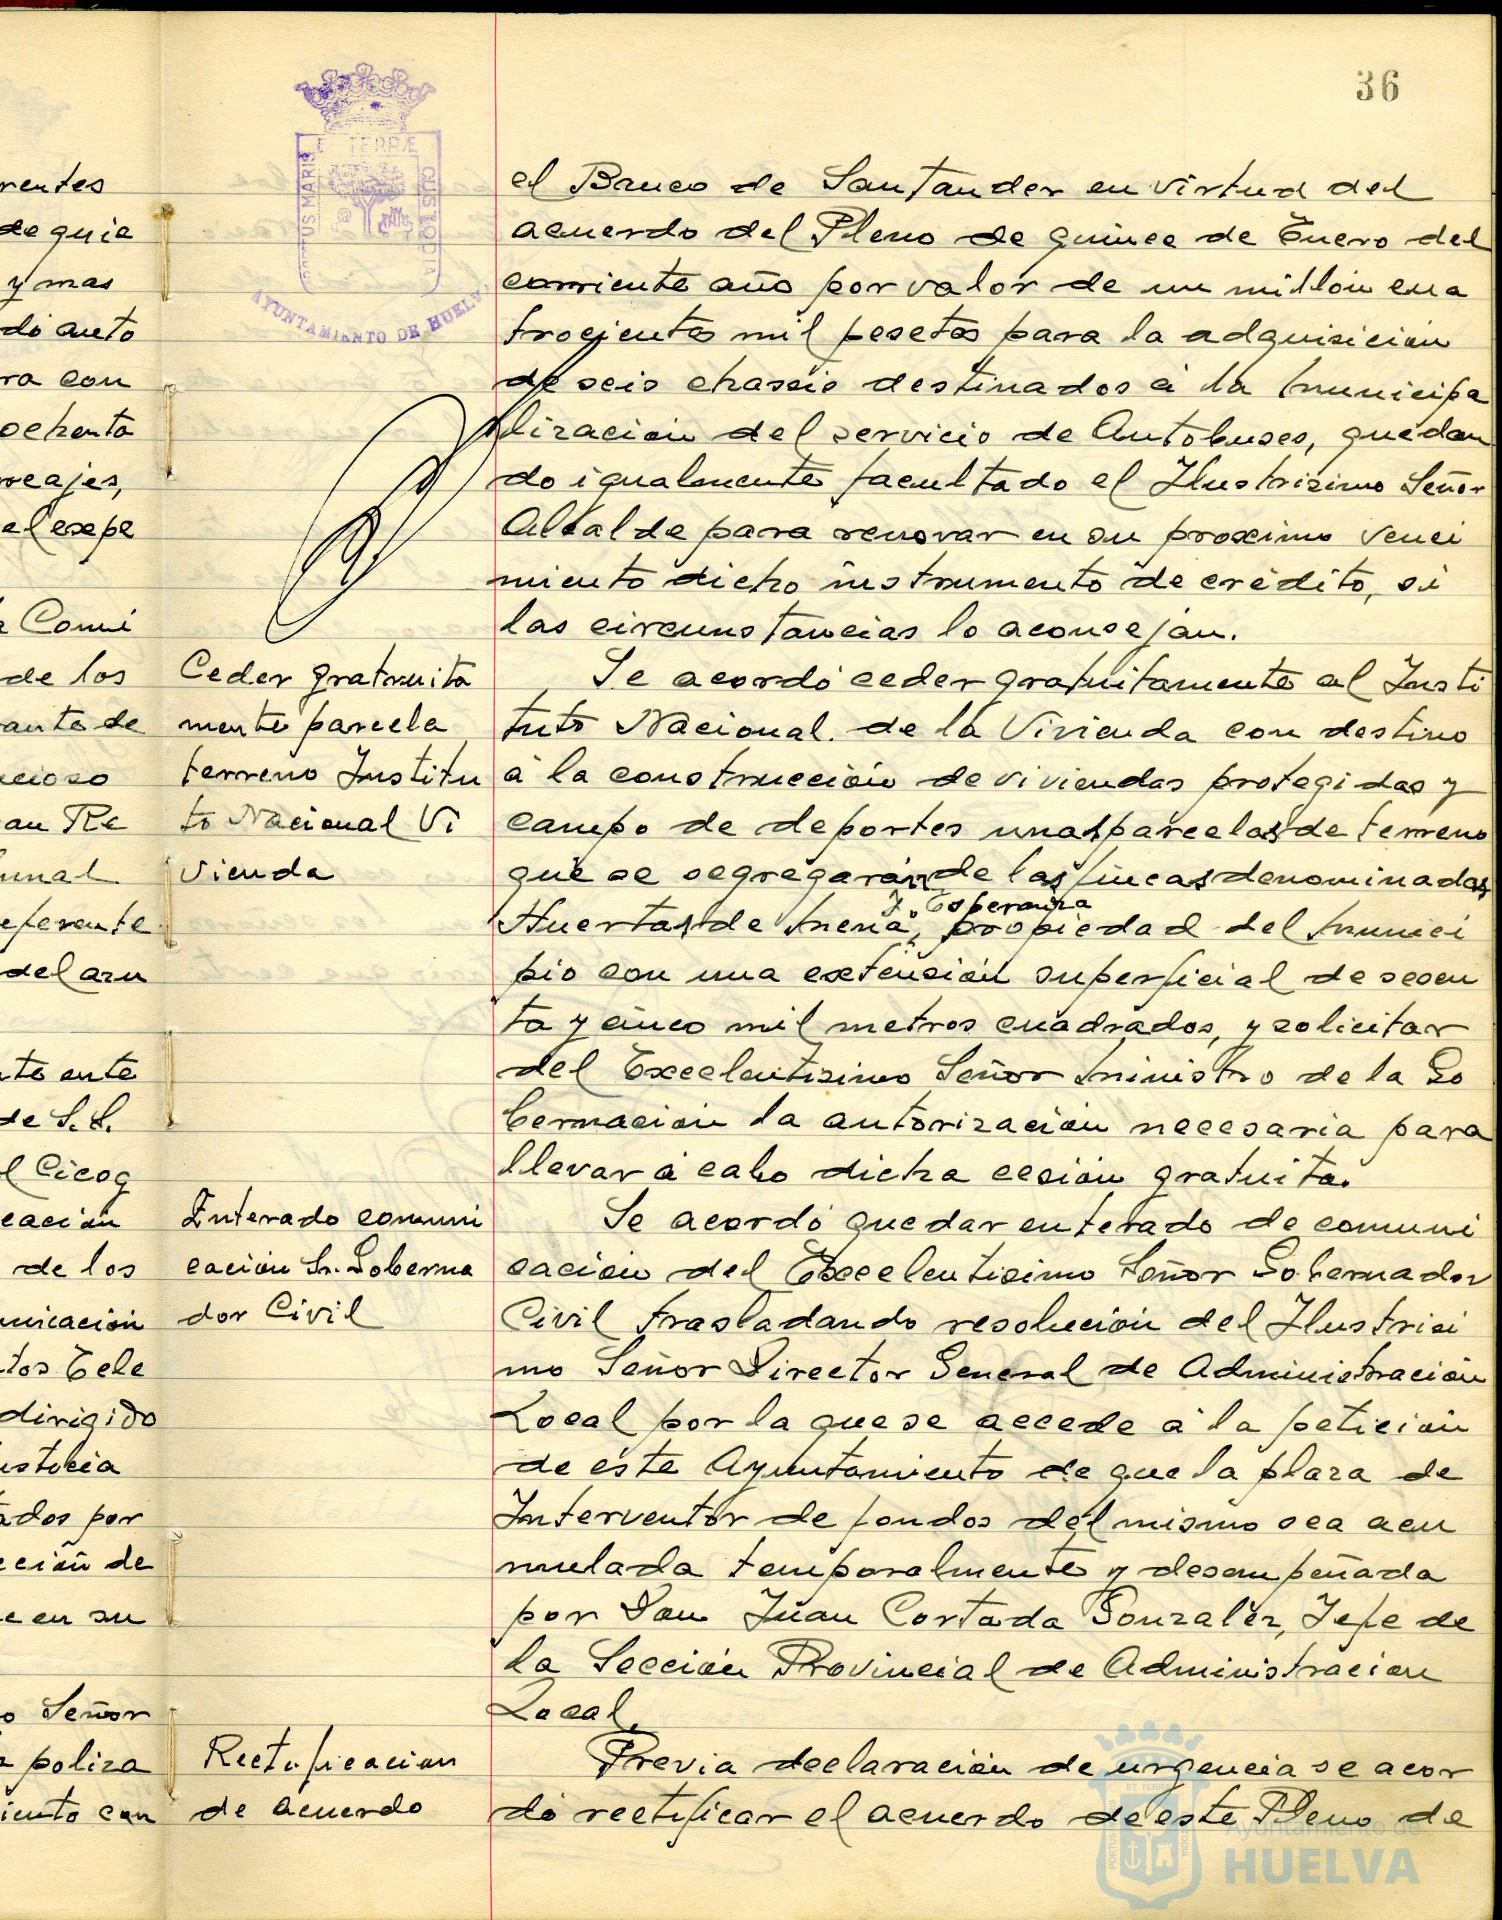 36
PORTUS MARIS ET TERRÆ CUSTODIA
AYUNTAMIENTO DE HUELVA
rentes
de quie
y mas
dó auto
ra con
ochenta
reajes,
el expe
a Comi
de los
ante de
ncioso
an Re
unal
eferente
del azu
te ente
de S. S.
l Cicog
cación
de los
unicación
tos Cele
dirigido
usticia
ados por
cción de
e en su
o Señor
a poliza
iento con
el Banco de Santander en virtud del
acuerdo del Pleno de quince de Enero del
corriente año por valor de un millón cua
trocientas mil pesetas para la adquisición
de seis chassis destinados á la municipa
lización del servicio de Autobuses, quedan
do igualmente facultado el Ilustrisimo Señor
Alcalde para renovar en su proximo venci
miento dicho instrumento de crédito, si
las circunstancias lo aconsejan.
Ceder gratuita
mente parcela
terreno Institu
to Nacional Vi
vienda
Se acordó ceder gratuitamente al Insti
tuto Nacional de la Vivienda con destino
á la construcción de viviendas protegidas y
campo de deportes unas parcelas de terreno
que se segregarán de las fincas denominadas
Huertas de Mena y Esperanza, propiedad del Munici
pio con una extensión superficial de sesen
ta y cinco mil metros cuadrados, y solicitar
del Excelentisimo Señor Ministro de la Go
bernación la autorización necesaria para
llevar á cabo dicha cesión gratuita.
Enterado comuni
cación Sr. Goberna
dor Civil
Se acordó quedar enterado de comuni
cación del Excelentisimo Señor Gobernador
Civil trasladando resolución del Ilustrisi
mo Señor Director General de Administración
Local por la que se accede á la petición
de este Ayuntamiento de que la plaza de
Interventor de fondos del mismo sea acu
mulada temporalmente y desempeñada
por Don Juan Cortada Gonzalez, Jefe de
la Sección Provincial de Administracion
Local.
Rectificacion
de acuerdo
Previa declaración de urgencia se acor
dó rectificar el acuerdo de este Pleno de
Ayuntamiento de
HUELVA